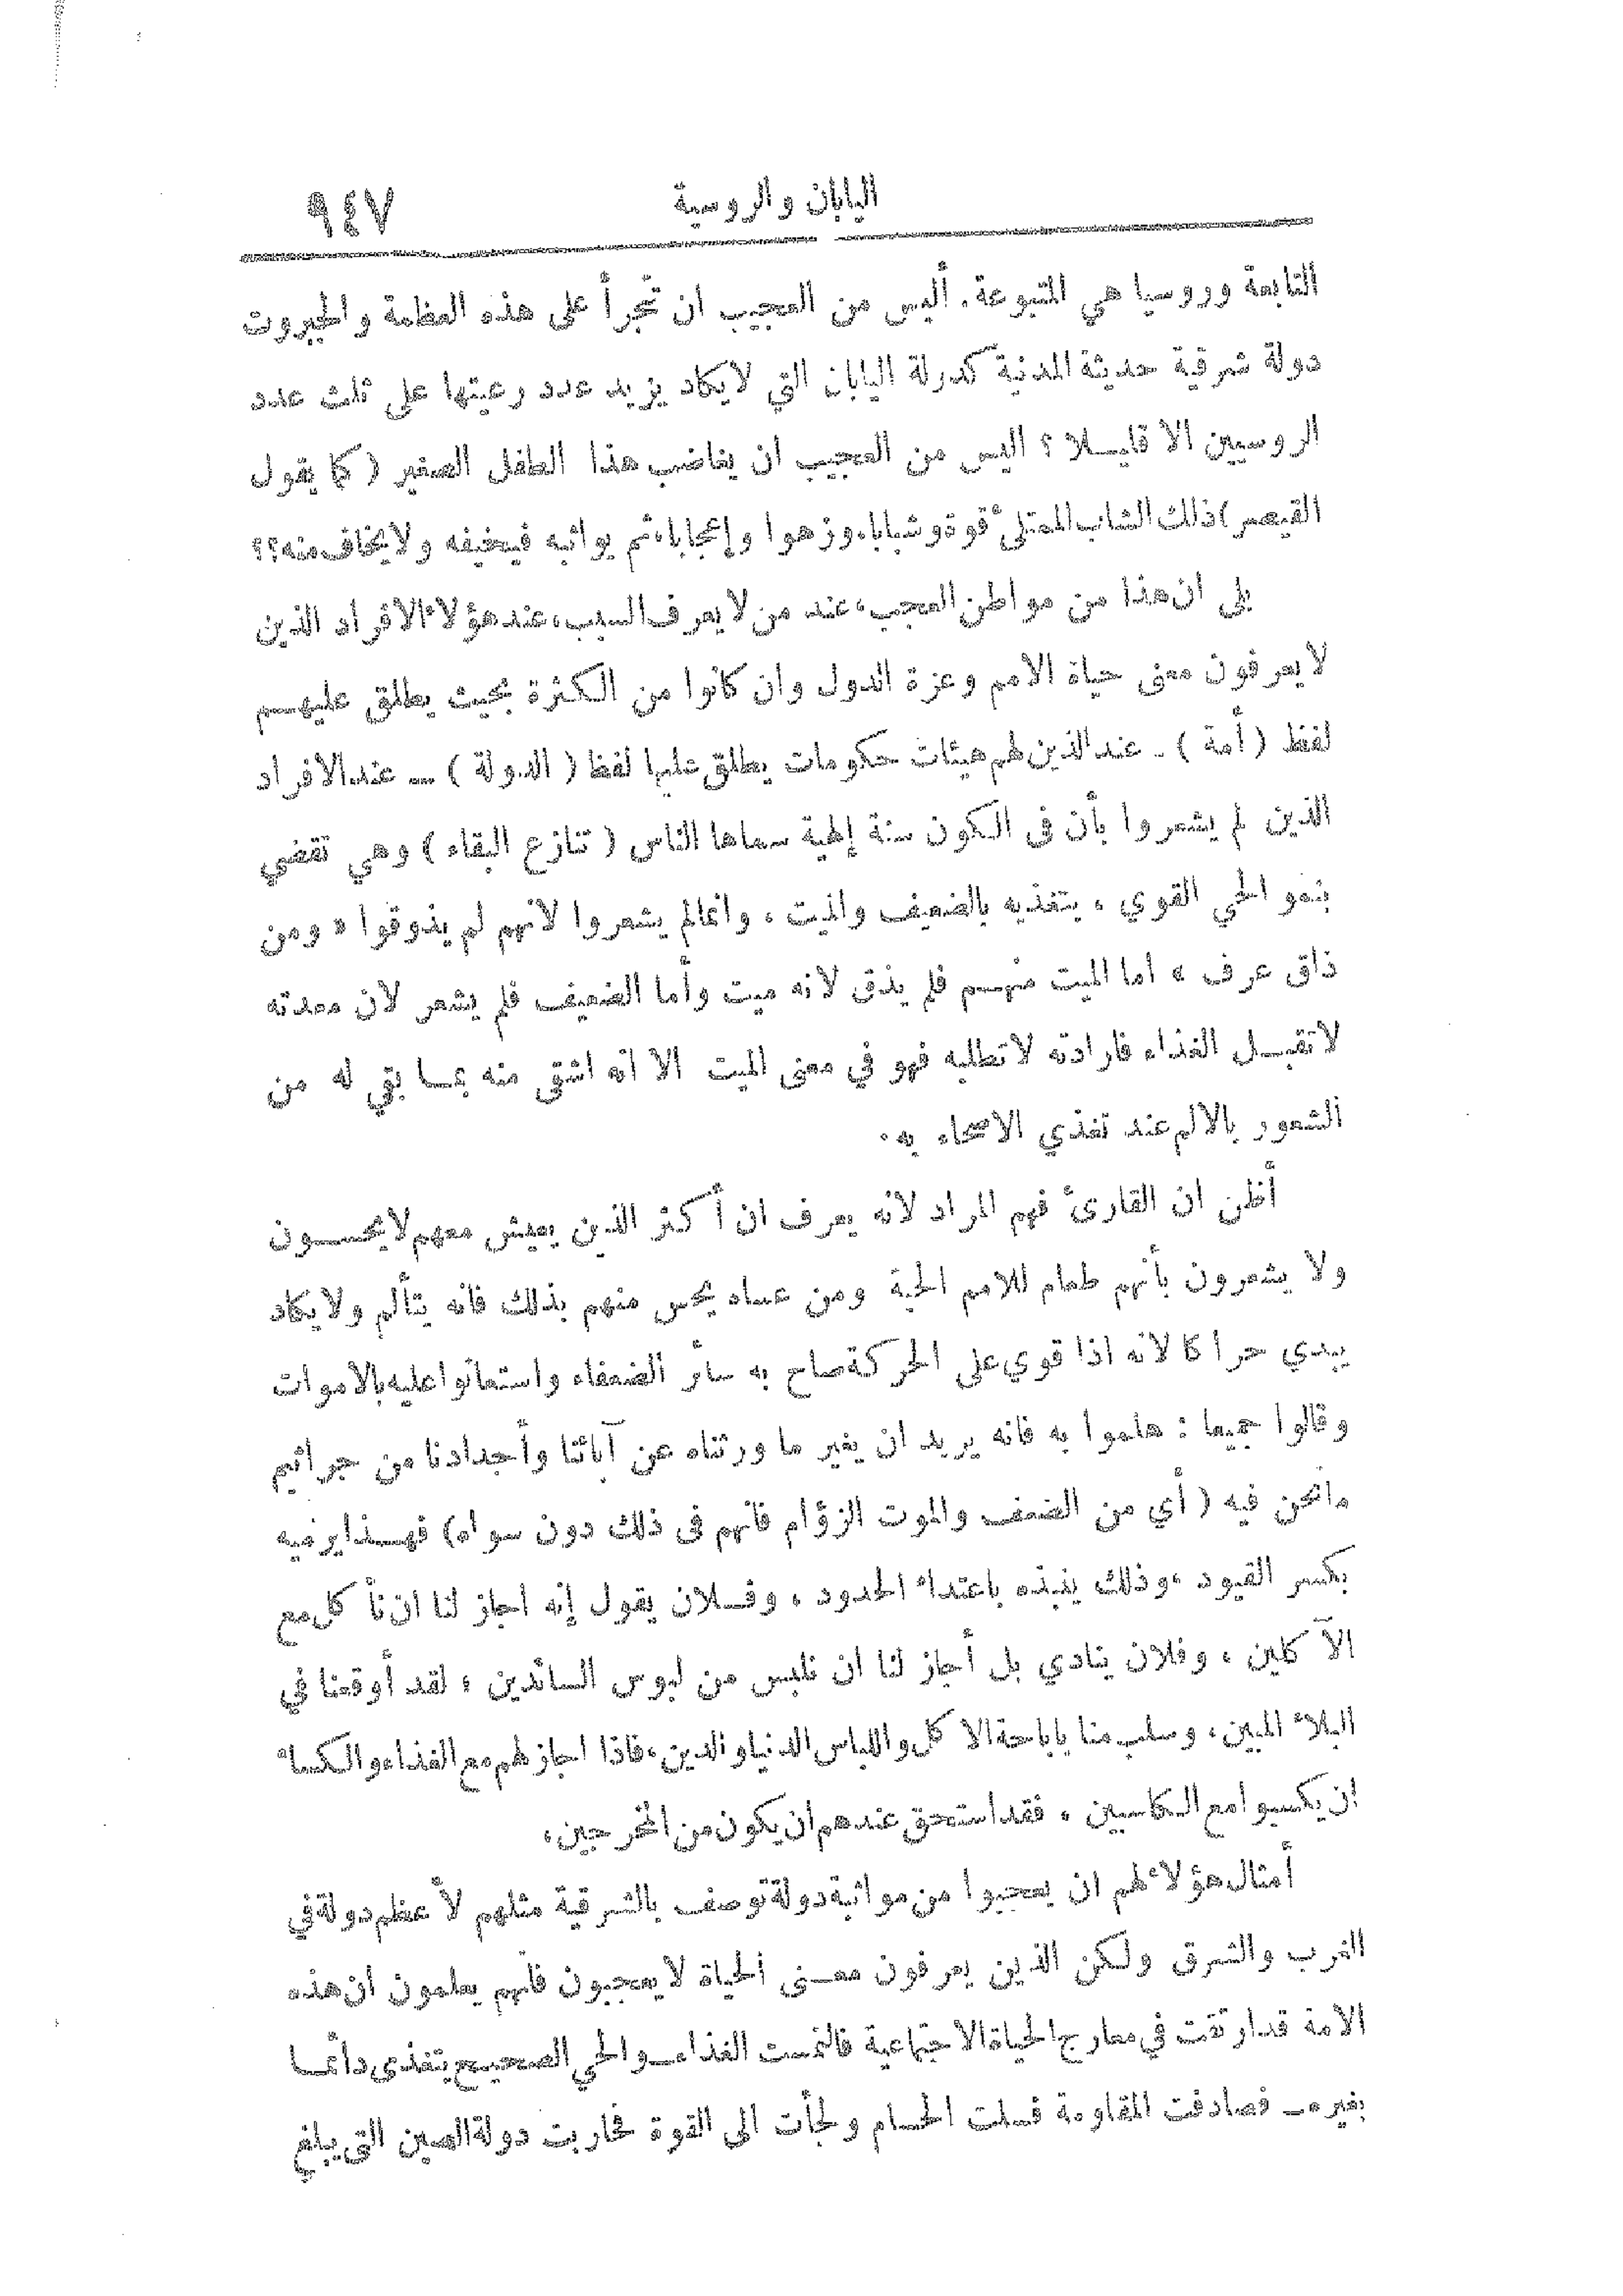 اليابان والروسية ٩٤٧
التابعة وروسيا هي المتبوعة. أليس من العجيب ان تجرأ على هذه العظمة والجبروت
دولة شرقية حديثة المدنية كدولة اليابان التي لا يكاد يزيد عدد رعيتها على ثلث عدد
الروسيين الا قليلا؟ اليس من العجيب ان يغاضب هذا الطفل الصغير (كما يقول
القيصر) ذلك الشاب الممتلئ قوة وشبابا، وزهوا وإعجابا، ثم يواثبه فيخيفه ولا يخاف منه؟؟
بلى ان هذا من مواطن العجب، عند من لا يعرف السبب، عند هؤلاء الافراد الذين
لا يعرفون معنى حياة الامم وعزة الدول وان كانوا من الكثرة بحيث يطلق عليهم
لفظ (أمة) ـ عند الذين لهم هيئات حكومات يطلق عليها لفظ (الدولة) ـ عند الافراد
الذين لم يشعروا بأن في الكون سنة إلهية سماها الناس (تنازع البقاء) وهي تقضي
بنمو الحي القوي، بتغذيه بالضعيف والميت، وانما لم يشعروا لانهم لم يذوقوا «ومن
ذاق عرف» اما الميت منهم فلم يذق لانه ميت وأما الضعيف فلم يشعر لان معدته
لا تقبل الغذاء فارادته لا تطلبه فهو في معنى الميت الا انه اشقى منه بما بقي له من
الشعور بالالم عند تغذي الاصحاء به.
أظن ان القارئ فهم المراد لانه يعرف ان أكثر الذين يعيش معهم لا يحسون
ولا يشعرون بأنهم طعام للامم الحية ومن عساه يحس منهم بذلك فانه يتألم ولا يكاد
يبدي حراكا لانه اذا قوي على الحركة صاح به سائر الضعفاء واستعانوا عليه بالاموات
وقالوا جميعا: هلموا به فانه يريد ان يغير ما ورثناه عن آبائنا وأجدادنا من جراثيم
ما نحن فيه (أي من الضعف والموت الزؤام فانهم في ذلك دون سواه) فهذا يرميه
بكسر القيود، وذلك ينبذه باعتداء الحدود، وفلان يقول إنه اجاز لنا ان نأكل مع
الآكلين، وفلان ينادي بل أجاز لنا ان نلبس من لبوس السائدين، لقد أوقعنا في
البلاء المبين، وسلب منا باباحة الاكل واللباس الدنيا والدين، فاذا اجاز لهم مع الغذاء والكساء
ان يكسبوا مع الكاسبين، فقد استحق عندهم ان يكون من المخرجين،
أمثال هؤلاء لهم ان يعجبوا من مواثبة دولة توصف بالشرقية مثلهم لأعظم دولة في
الغرب والشرق ولكن الذين يعرفون معنى الحياة لا يعجبون فانهم يعلمون ان هذه
الامة قد ارتقت في معارج الحياة الاجتماعية فالتمست الغذاء ـ والحي الصحيح يتغذى دائما
بغيره ـ فصادفت المقاومة فسلت الحسام ولجأت الى القوة فحاربت دولة الصين التي يبلغ